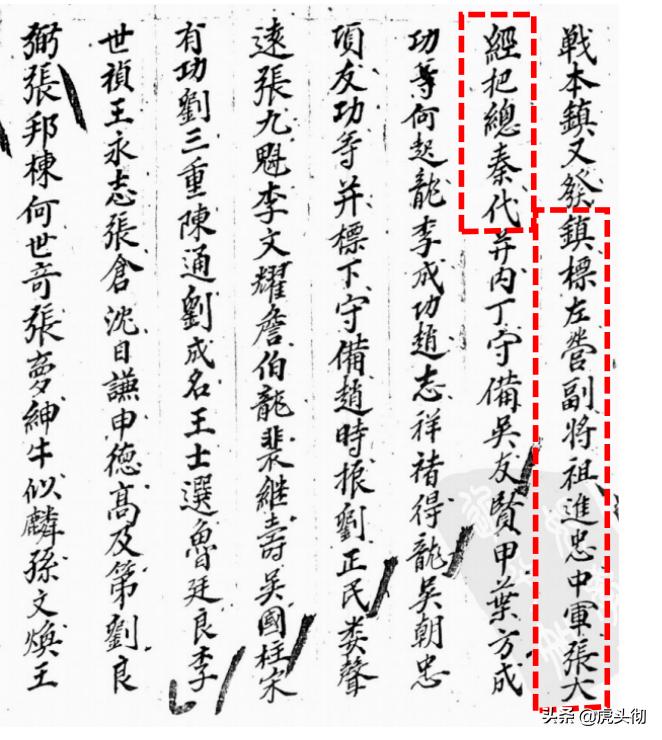 戰本鎮又發鎮標左營副將祖進忠中軍張大
經把總秦代并内丁守備吳友賢甲葉方成
功等何起龍李成功趙志祥褚得龍吳朝忠
項友功等并標下守備趙時振劉正民婁聲
遠張九魁李文耀詹伯龍裴繼壽吳國柱宋
有功劉三重陳通劉成名王士選魯廷良李
世禎王永志張倉沈自謙申德高及第劉良
弼張邦棟何世奇張夢紳牛似麟孫文煥王
头条 @虎头彻